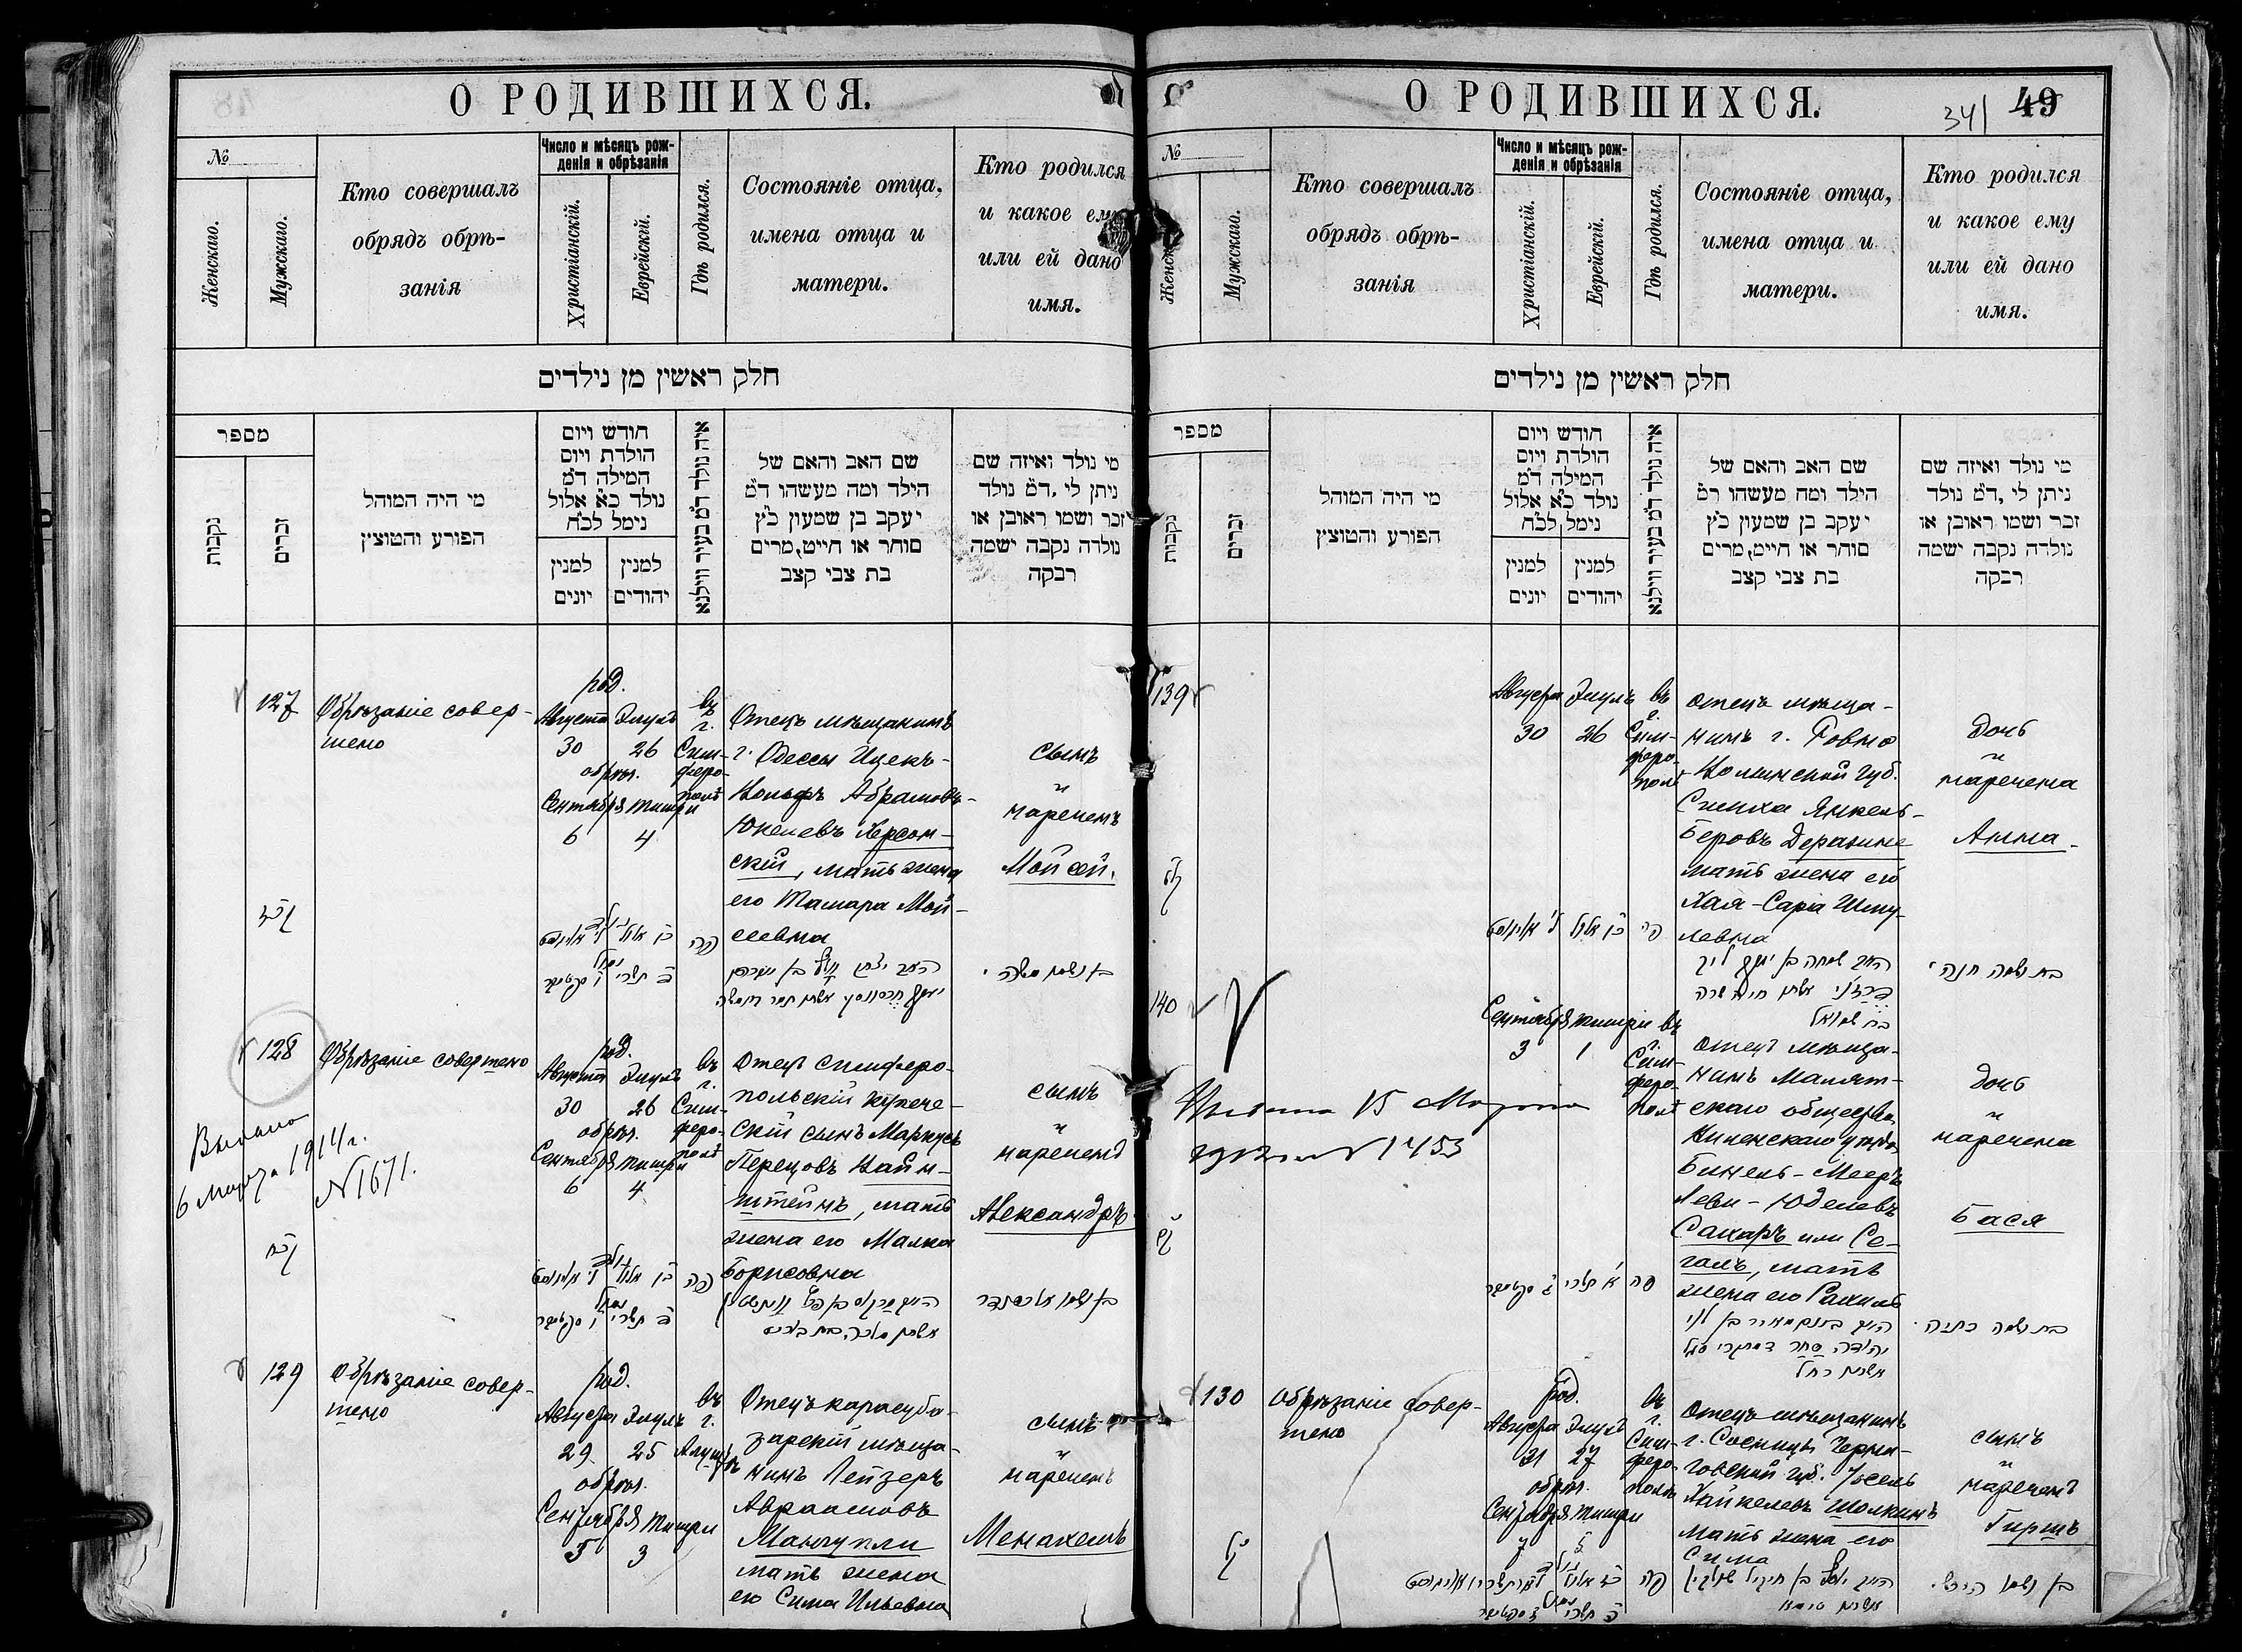 О РОДИВШИХСЯ.
№
Женскаго.
Мужскаго.
Кто совершалъ
обрядъ обрѣ-
занія
Число и мѣсяцъ рож-
денія и обрѣзанія
Христіанскій.
Еврейскій.
Гдѣ родился.
Состояніе отца,
имена отца и
матери.
Кто родился
и какое ему
или ей дано
имя.
חלק ראשין מן נילדים
מספר
נקבות
זכרים
מי היה המוהל
הפורע והטוצין
חודש ויום
הולדת ויום
המילה ד״מ
נולד כ״א אלול
נימל לכ״ח
למנין
יונים
למנין
יהודים
איה נולד ד״מ בעיר ווילנא
שם האב והאם של
הילד ומה מעשהו ד״מ
יעקב בן שמעון כ״ץ
סוחר או חייט, מרים
בת צבי קצב
מי נולד ואיזה שם
ניתן לי, ד״מ נולד
זכר ושמו ראובן או
נולדה נקבה ישמה
רבקה
127
Обрѣзаніе совер-
шено
род.
Августа Элулъ
30 26
обрѣз.
Сентября Тишри
6 4
въ
г.
Сим-
феро-
полѣ
Отецъ мѣщанинъ
г. Одессы Ицекъ-
Вольфъ Абрамовъ-
Юкелевъ Херсон-
скій, мать жена
его Тамара Мой-
сеевна
сынъ
и
нареченъ
Мойсей.
קכז
כו אלול
ל אויגוסט
פה
ד תשרי
ו סקטמבר
בן ושמו משה
128
Обрѣзаніе совершено
род.
Августа Элулъ
30 26
обрѣз.
Сентября Тишри
6 4
въ
г.
Сим-
феро-
полѣ
Отецъ симферо-
польскій купече-
скій сынъ Маркусъ
Перецовъ Вайн-
штейнъ, мать
жена его Малка
Борисовна
сынъ
и
нареченъ
Александръ
Выдано
6 Марта 1914 г.
№ 1671.
קכח
כו אלול
ל אויגוסט
פה
ד תשרי
ו סקטמבר
בן ושמו אלכסנדר
129
Обрѣзаніе совер-
шено
род.
Августа Элулъ
29 25
обрѣз.
Сентября Тишри
5 3
въ
г.
Алуштѣ
Отецъ карасуба-
зарскій мѣща-
нинъ Лейзеръ
Авраамовъ
Мангупли
мать жена
его Сима Ильевна
сынъ
и
нареченъ
Менахемъ
О РОДИВШИХСЯ.
341 49
№
Женскаго.
Мужскаго.
Кто совершалъ
обрядъ обрѣ-
занія
Число и мѣсяцъ рож-
денія и обрѣзанія
Христіанскій.
Еврейскій.
Гдѣ родился.
Состояніе отца,
имена отца и
матери.
Кто родился
и какое ему
или ей дано
имя.
חלק ראשין מן נילדים
מספר
נקבות
זכרים
מי היה המוהל
הפורע והטוצין
חודש ויום
הולדת ויום
המילה ד״מ
נולד כ״א אלול
נימל לכ״ח
למנין
יונים
למנין
יהודים
איה נולד ד״מ בעיר ווילנא
שם האב והאם של
הילד ומה מעשהו ד״מ
יעקב בן שמעון כ״ץ
סוחר או חייט, מרים
בת צבי קצב
מי נולד ואיזה שם
ניתן לי, ד״מ נולד
זכר ושמו ראובן או
נולדה נקבה ישמה
רבקה
139
Августа Элулъ
30 26
въ
г.
Сим-
феро-
полѣ
отецъ мѣща-
нинъ г. Ровно
Волынской губ.
Симха Янкель-
Беровъ Деражне
мать жена его
Хая-Сара Шму-
левна
Дочь
и
наречена
Анна
כו אלול
ל אויגוסט
פה
בת ושמה חנה
140
Сентября Тишри
3 1
въ
г.
Сим-
феро-
полѣ
отецъ мѣща-
нинъ Малят-
скаго общества
Виленскаго уѣзда
Бинель-Мееръ
Леви-Юделевъ
Сахаръ или Се-
галъ, мать
жена его Рахиль
Дочь
и
наречена
Бася
15 Марта
1453
א תשרי
ג סקטמבר
פה
130
Обрѣзаніе совер-
шено
род.
Августа Элулъ
31 27
обрѣз.
Сентября Тишри
7 5
въ
г.
Сим-
феро-
полѣ
отецъ мѣщанинъ
г. Сосницы Черни-
говской губ. Іосель
Хайкелевъ Шолкинъ
мать жена его
Сима
сынъ
и
нареченъ
Гиршъ
קל
כז אלול
פה
ה תשרי
ז סקטמבר
בן ושמו הירש